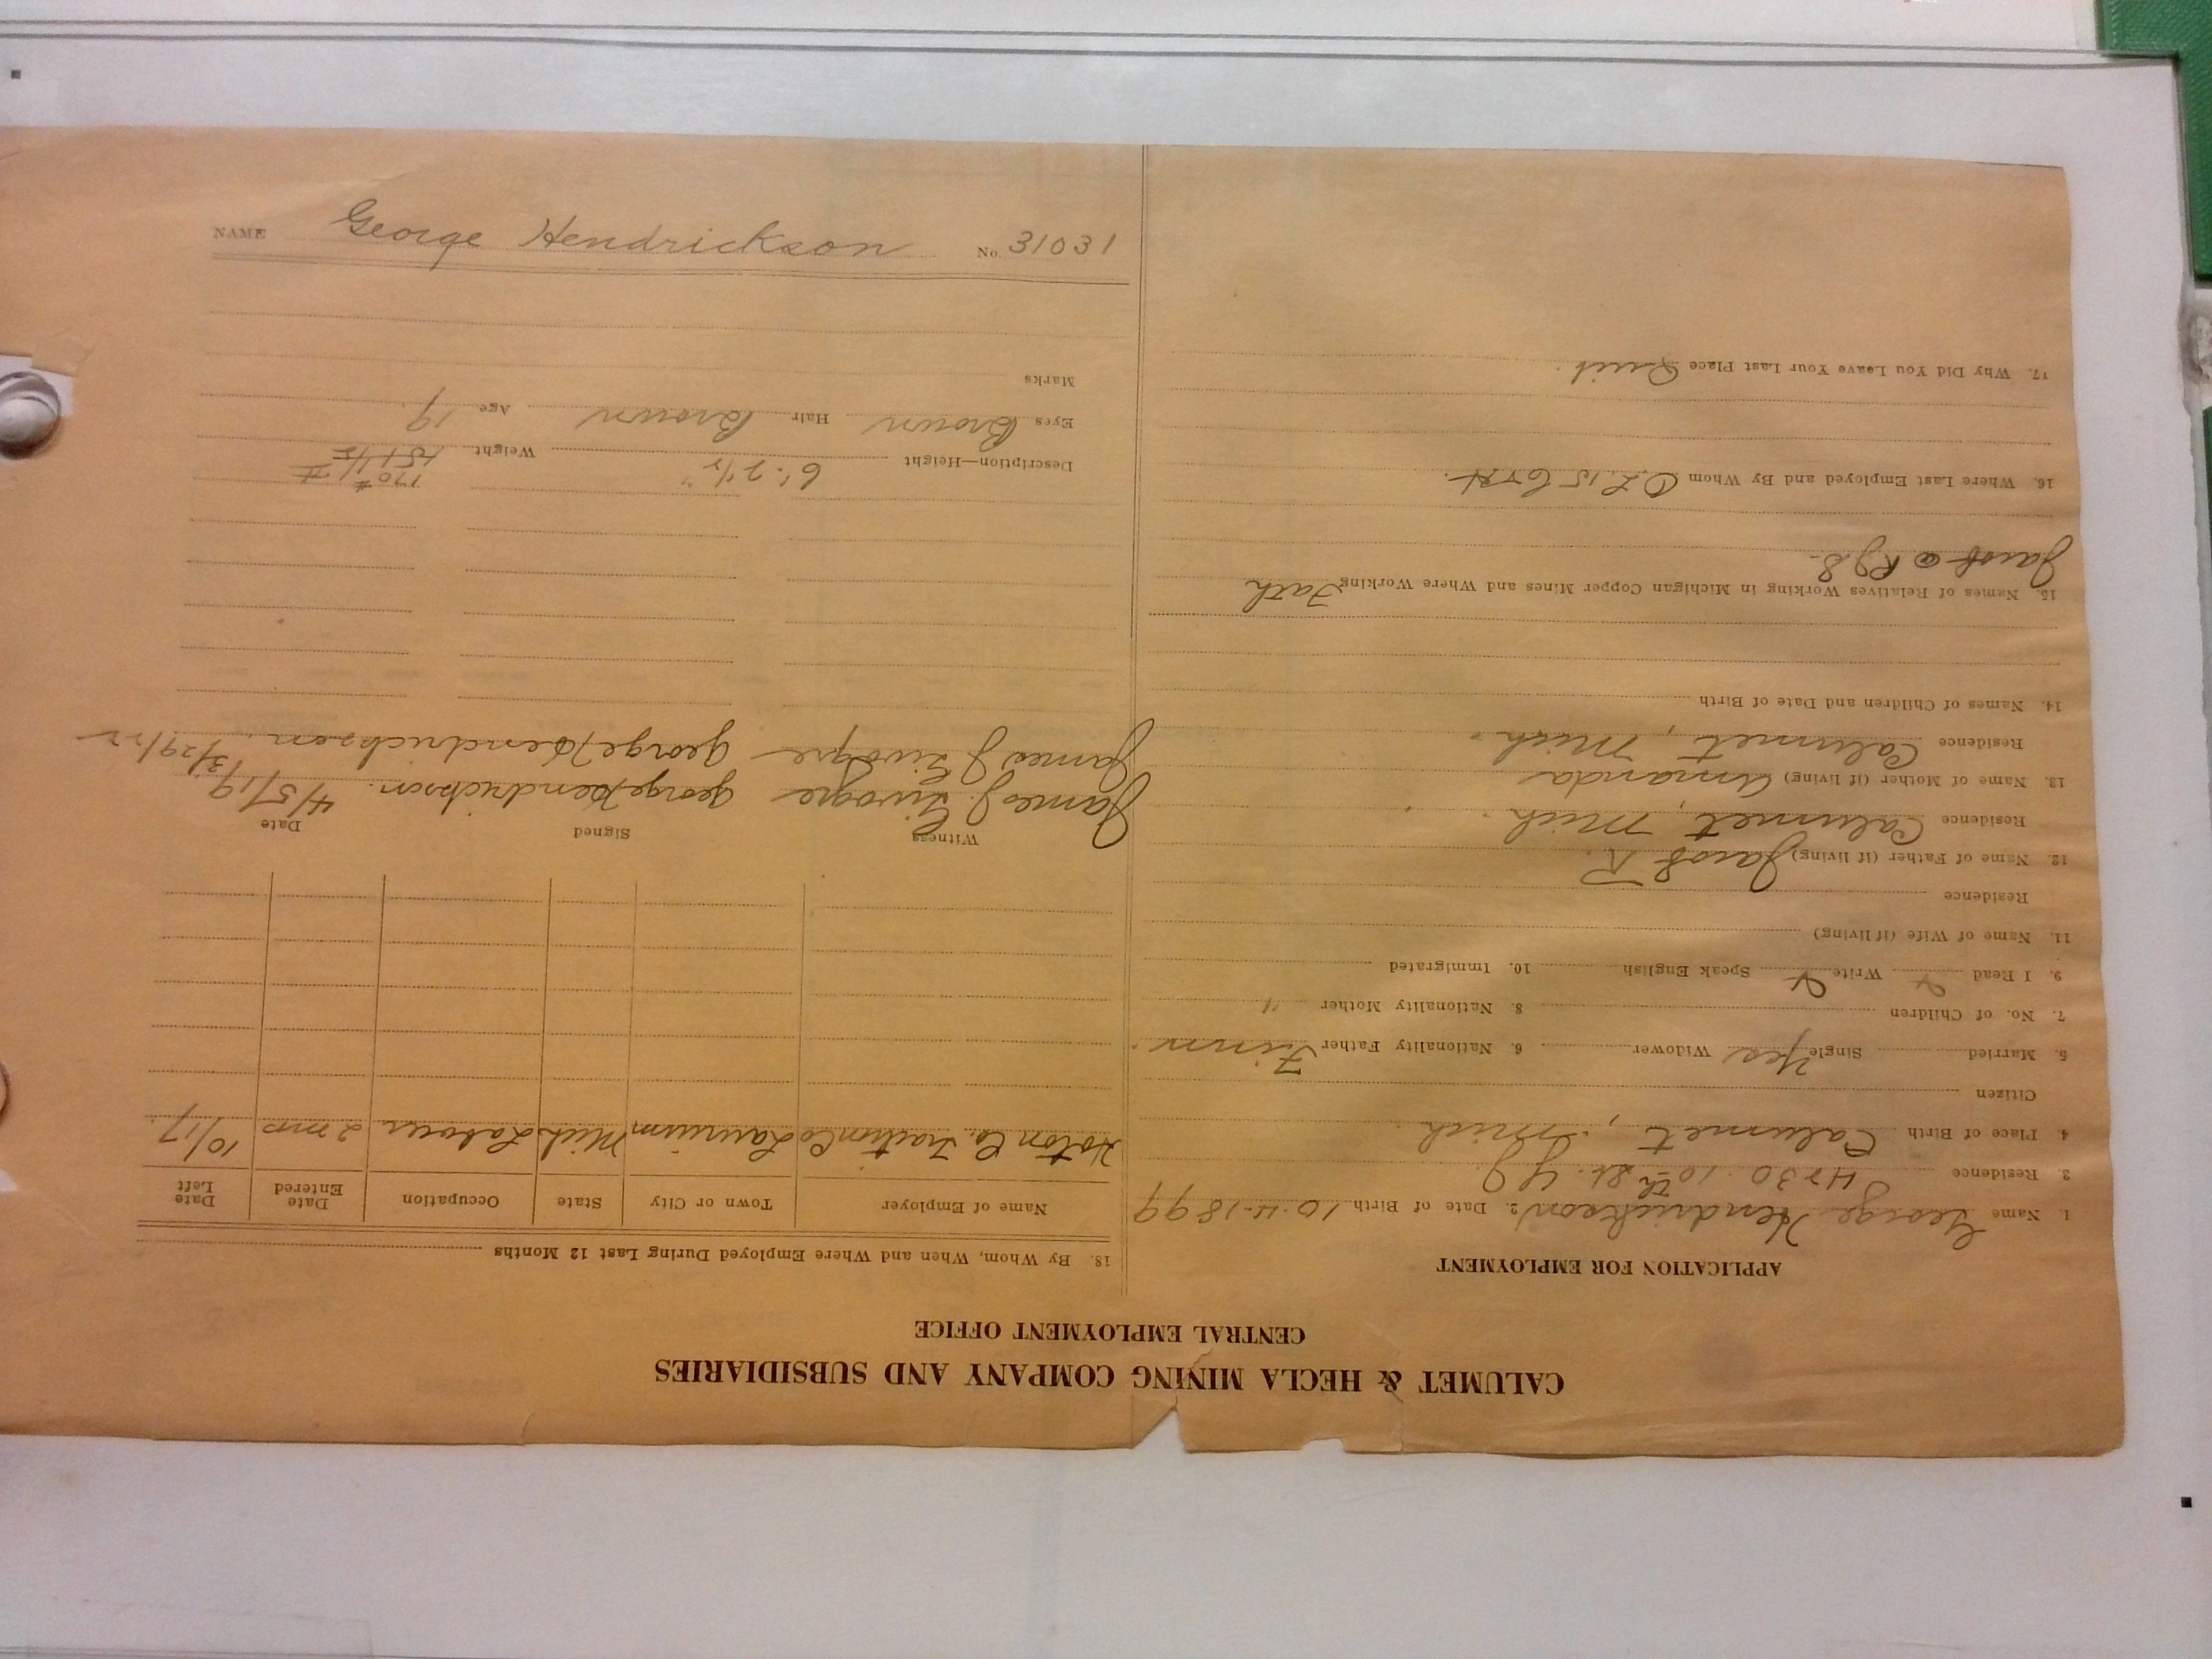 CALUMET & HECLA MINING COMPANY AND SUBSIDIARIES
CENTRAL EMPLOYMENT OFFICE
APPLICATION FOR EMPLOYMENT
1. Name George Hendrickson 2. Date of Birth 10-4-1899
3. Residence 4230 10th St.
4. Place of Birth Calumet, Mich.
Citizen
5. Married Single Yes Widower 6. Nationality Father Finn.
7. No. of Children 8. Nationality Mother "
9. I Read Write Speak English 10. Immigrated
11. Name of Wife (if living)
Residence
12. Name of Father (if living) Jacob R.
Residence Calumet, Mich.
13. Name of Mother (if living) Amanda
Residence Calumet, Mich.
14. Names of Children and Date of Birth
15. Names of Relatives Working in Michigan Copper Mines and Where Working Fath
Jacob @
16. Where Last Employed and By Whom
17. Why Did You Leave Your Last Place Quit.
18. By Whom, When and Where Employed During Last 12 Months
Name of Employer Town or City State Occupation Date Entered Date Left
Hoton Co. Traction Co Laurium Mich Laborer 2 mos 10/17.
Witness Signed Date
James J George Hendrickson. 4/5/19
James J George Hendrickson. 3/29/22
Description—Height 6'-2 1/2" Weight 170# 151 1/2#
Eyes Brown Hair Brown Age 19.
Marks
NAME George Hendrickson No. 31031